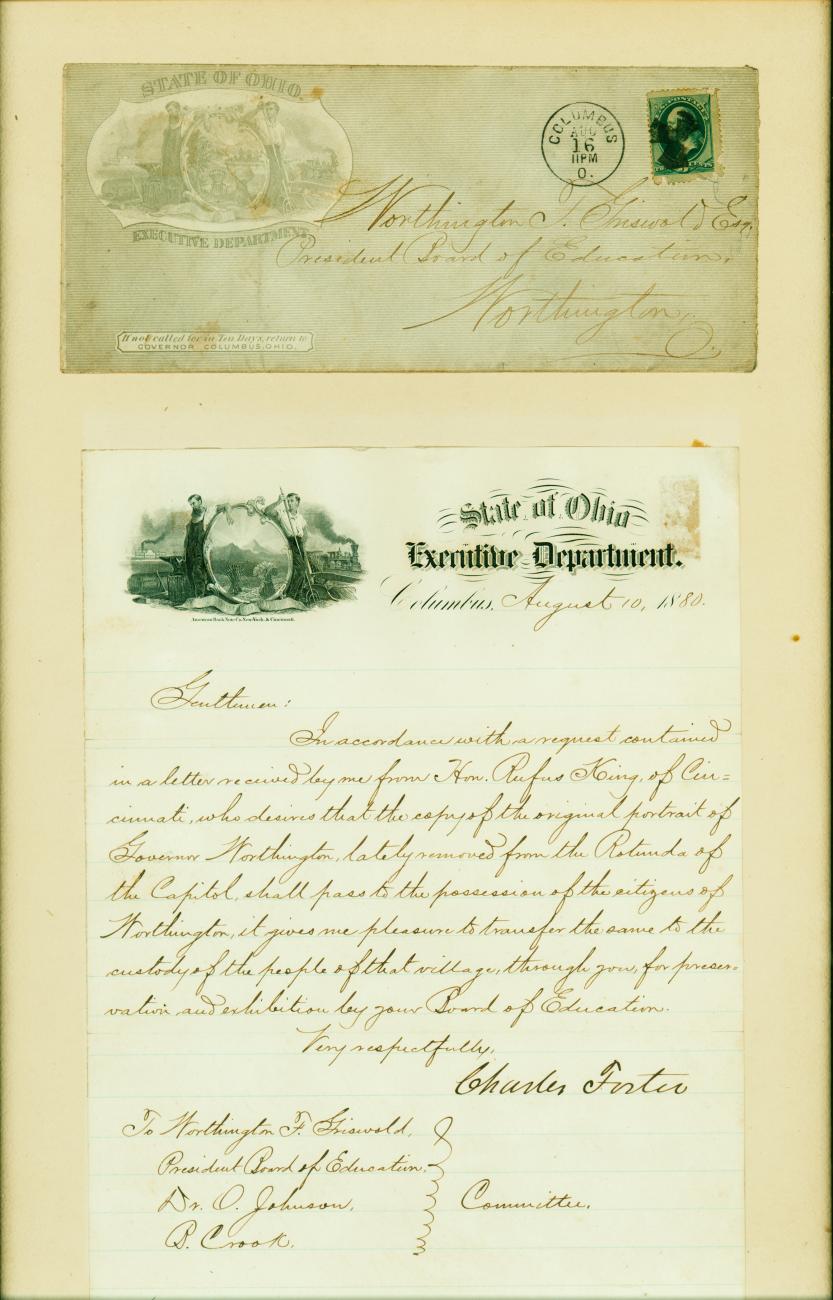 STATE OF OHIO
EXECUTIVE DEPARTMENT
If not called for in Ten Days, return to
GOVERNOR COLUMBUS, OHIO.
COLUMBUS
AUG
16
11PM
O.
Worthington F. Griswold Esq.
President Board of Education,
Worthington,
O.
State of Ohio
Executive Department.
American Bank Note Co. New York & Cincinnati.
Columbus, August 10, 1880.
Gentlemen:
In accordance with a request contained
in a letter received by me from Hon. Rufus King, of Cin=
cinnati, who desires that the copy of the original portrait of
Governor Worthington, lately removed from the Rotunda of
the Capitol, shall pass to the possession of the citizens of
Worthington, it gives me pleasure to transfer the same to the
custody of the people of that village, through you, for preser=
vation and exhibition by your Board of Education.
Very respectfully,
Charles Foster
To Worthington F. Griswold,
President Board of Education,
Dr. O. Johnson, Committee.
B. Crook.